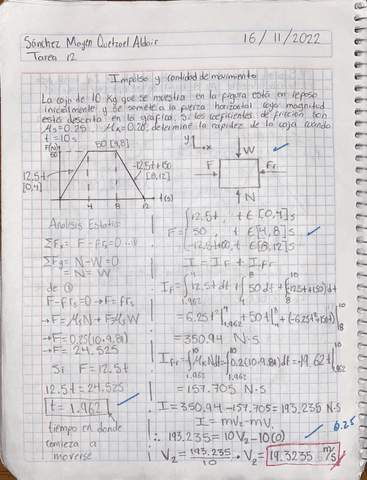 Sánchez Moyen Quetzael Aldair
16/11/2022
Tarea 12
Impulso y cantidad de movimiento
La caja de 10 Kg que se muestra en la figura está en reposo
inicialmente y se somete a la fuerza horizontal cuya magnitud
está descrita en la gráfica. Si los coeficientes de fricción son
μs=0.25 μk=0.20, determine la rapidez de la caja cuando
t=10s.
F(N)
50
50 [4,8]
12.5t
[0,4]
-12.5t+150
[8,12]
4 8 12 t(s)
y
x
W
F
Fr
N
Analisis Estatico
ΣFx= F-frs=0...①
ΣFy= N-W=0
=N=W
de ①
F-frs=0→F=frs
→F=μsN→F=μsW
→F=0.25(10·9.81)
→F=24.525
Si F=12.5t
12.5t=24.525
t=1.962
tiempo en donde
comieza a
moverse
F= { 12.5t, t∈[0,4]s
50, t∈[4,8]s
-12.5t+150, t∈[8,12]s
I=IF+Ifr
IF=∫12.5t dt+∫50dt+∫(-12.5t+150)dt
=6.25t²|+50t|+(-6.25t²+150t)|
=350.94 N·S
Ifr=∫μkNdt=∫0.2(10·9.81)dt=19.62t|
=157.705 N·S
I=350.94-157.705=193.235 N·S
I=mv₂-mv₁
∴ 193.235=10V₂-10(0)
V₂=193.235/10 → V₂=19.3235 m/s
0.25